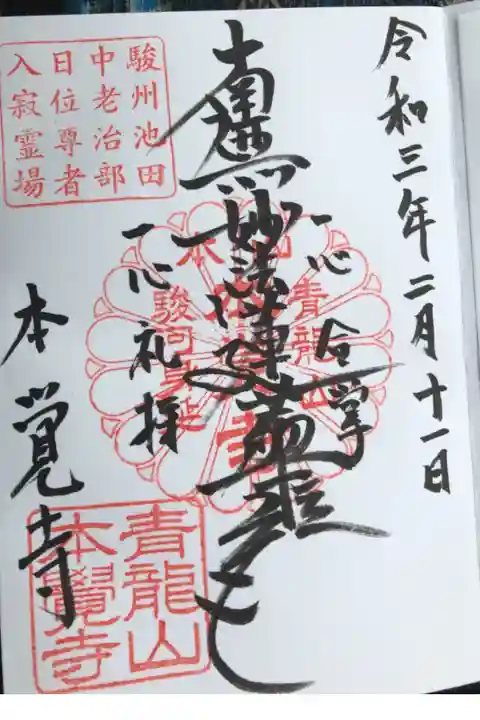 令和三年二月十一日
一心合掌
南無妙法蓮華経
一心礼拝
本覚寺
駿州池田
中老治部
日位尊者
入寂霊場
青龍山
本覺寺